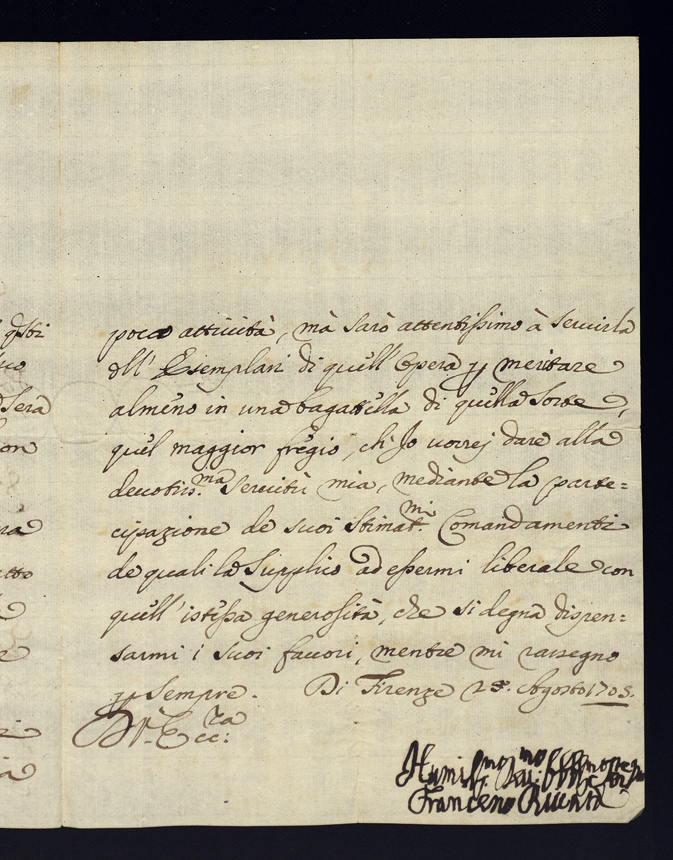 poca attività, mà sarò attentissimo à servirla
dell' Esemplari di quell' Opera p meritare
almeno in una bagattella di quella Sorte,
quel maggior fregio, ch' Jo vorrej dare alla
devotiss.ma Servitù mia, mediante la parte=
cipazione de suoi stimat.mi Comandamenti
de quali la Supplico ad essermi liberale con
quell' istessa generosità, che si degna dispen=
sarmi i suoi favori, mentre mi rassegno
p Sempre. Di Firenze 25. Agosto 1705.
Di V. Ecc:za
Humil.mo
Francesco